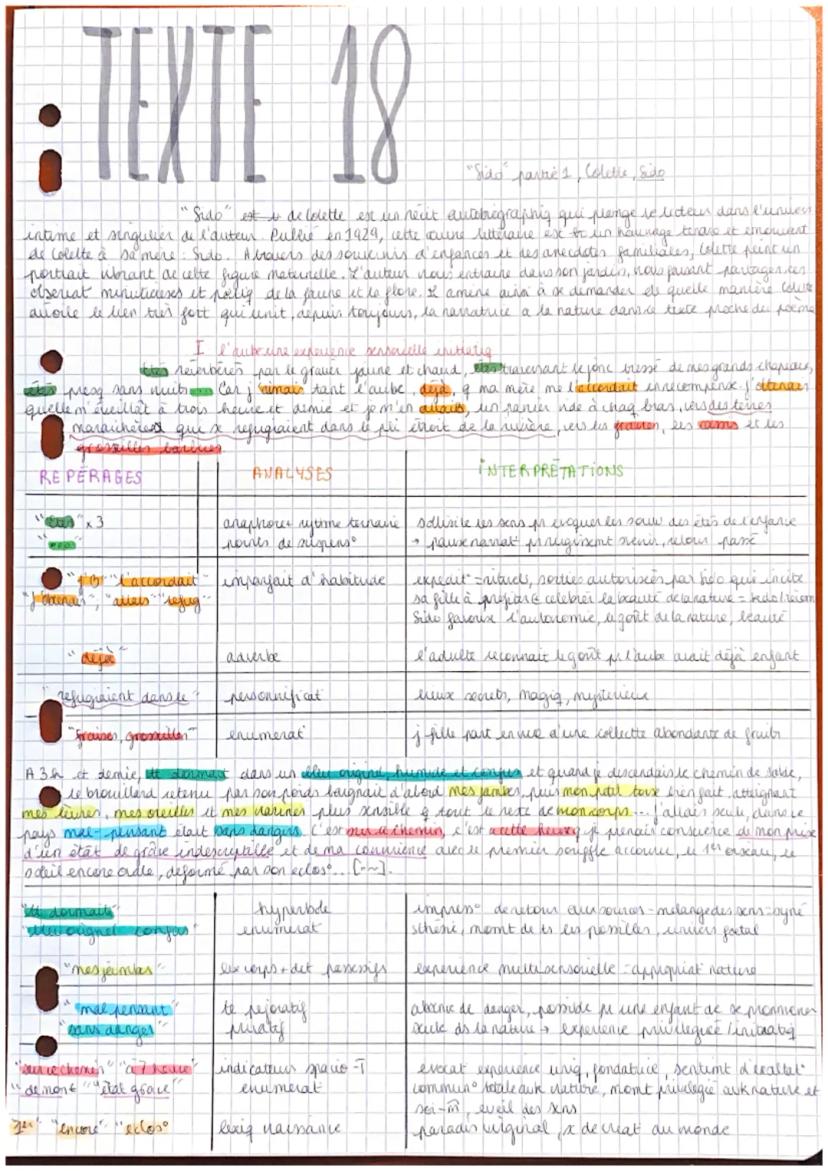 TEXTE 18
"Sido" partie 1, Colette, Sido
"Sido" de Colette est un récit autobiographiq qui plonge le lecteur dans l'univers
intime et singulier de l'auteur. Publié en 1929, cette œuvre littéraire est un hommage tendre et émouvant
de Colette à sa mère : Sido. A travers des souvenirs d'enfances et des anecdotes familiales, Colette peint un
portrait vibrant de cette figure maternelle. L'auteur nous entraine dans son jardin, nous faisant partager ces
observat minutieuses et poétiq de la faune et la flore. amène ainsi à se demander de quelle manière Colette
dévoile le lien très fort qui unit, depuis toujours, la narratrice a la nature dans ce texte proche du poème
I l'aube une expérience sensorielle initiatiq
étés réverbérés par le gravier jaune et chaud, étés traversant le jonc tressé de mes grands chapeaux,
étés presq sans nuits... Car j'aimais tant l'aube, déjà, q ma mère me l'accordait en récompense. j'obtenais
qu'elle m'éveillât à trois heure et demie et je m'en allais, un panier vide à chaq bras, vers des terres
maraichères que se refugiaient dans le pli étroit de la rivière, vers les fraises, les cassis et les
groseilles barbues
REPÉRAGES ANALYSES INTERPRÉTATIONS
"étés" x 3 anaphore + rytme ternaire sollicite les sens pr evoquer les souv des étés de l'enfance
"..." points de suspens° → pause narrat pr surgissent , retour passé
"l'accordait" imparfait d'habitude expédit° = rituel, sorties autorisées par Sido que incite
"j'obtenais", "allais" "refug" sa fille à célébrer la beauté de la nature =
Sido favorix l'autonomie, le goût de la nature, beauté
"déjà" adverbe l'adulte reconnait le goût pr l'aube avait déjà enfant
"refugiaient dans le" personnificat lieux secrets, magiq, mystérieux
"fraises, groseilles" enumerat j fille part en vue d'une collecte abondante de fruits
A 3h et demie, tt dormait dans un bleu originel, humide et confus et quand je descendais le chemin de sable,
le brouillard retenu par son poids baignait d'abord mes jambes, puis mon petit torse bien fait, atteignait
mes lèvres, mes oreilles et mes narines plus sensible q tout le reste de mon corps... j'allais seule, dans ce
pays mal-pensant était sans dangers. C'est sur ce chemin, c'est a cette heure q je prenais conscience de mon prix
d'un état de grâce indescriptible et de ma connivence avec le premier souffle accouru, le 1er oiseau, le
soleil encore ovale, déformé par son eclos°... [---].
"tt dormait" hyperbole impress° de retour aux sources - mélange des sens = syné
"bleu originel confus" enumerat sthésie, momt de ts les possibles, univers foetal
"mes jambes" lex corps + det possessifs expérience multisensorielle = appropriat nature
"mal pensant" te péjoratif absence de danger, possible pr une enfant de se promener
"sans danger" privatif seule ds la nature → expérience privilegiée / initiatiq
"sur ce chemin" "a heure" indicateurs spacio-T evocat expérience uniq, fondatrice, sentimt d'exaltat°
"de mon" "état grâce" enumerat commun° totale avk nature, momt privilegié avk nature et
soi-m̂, eveil des sens
"1er" "encore" "eclos°" lexiq naissance paradis originel, de creat du monde